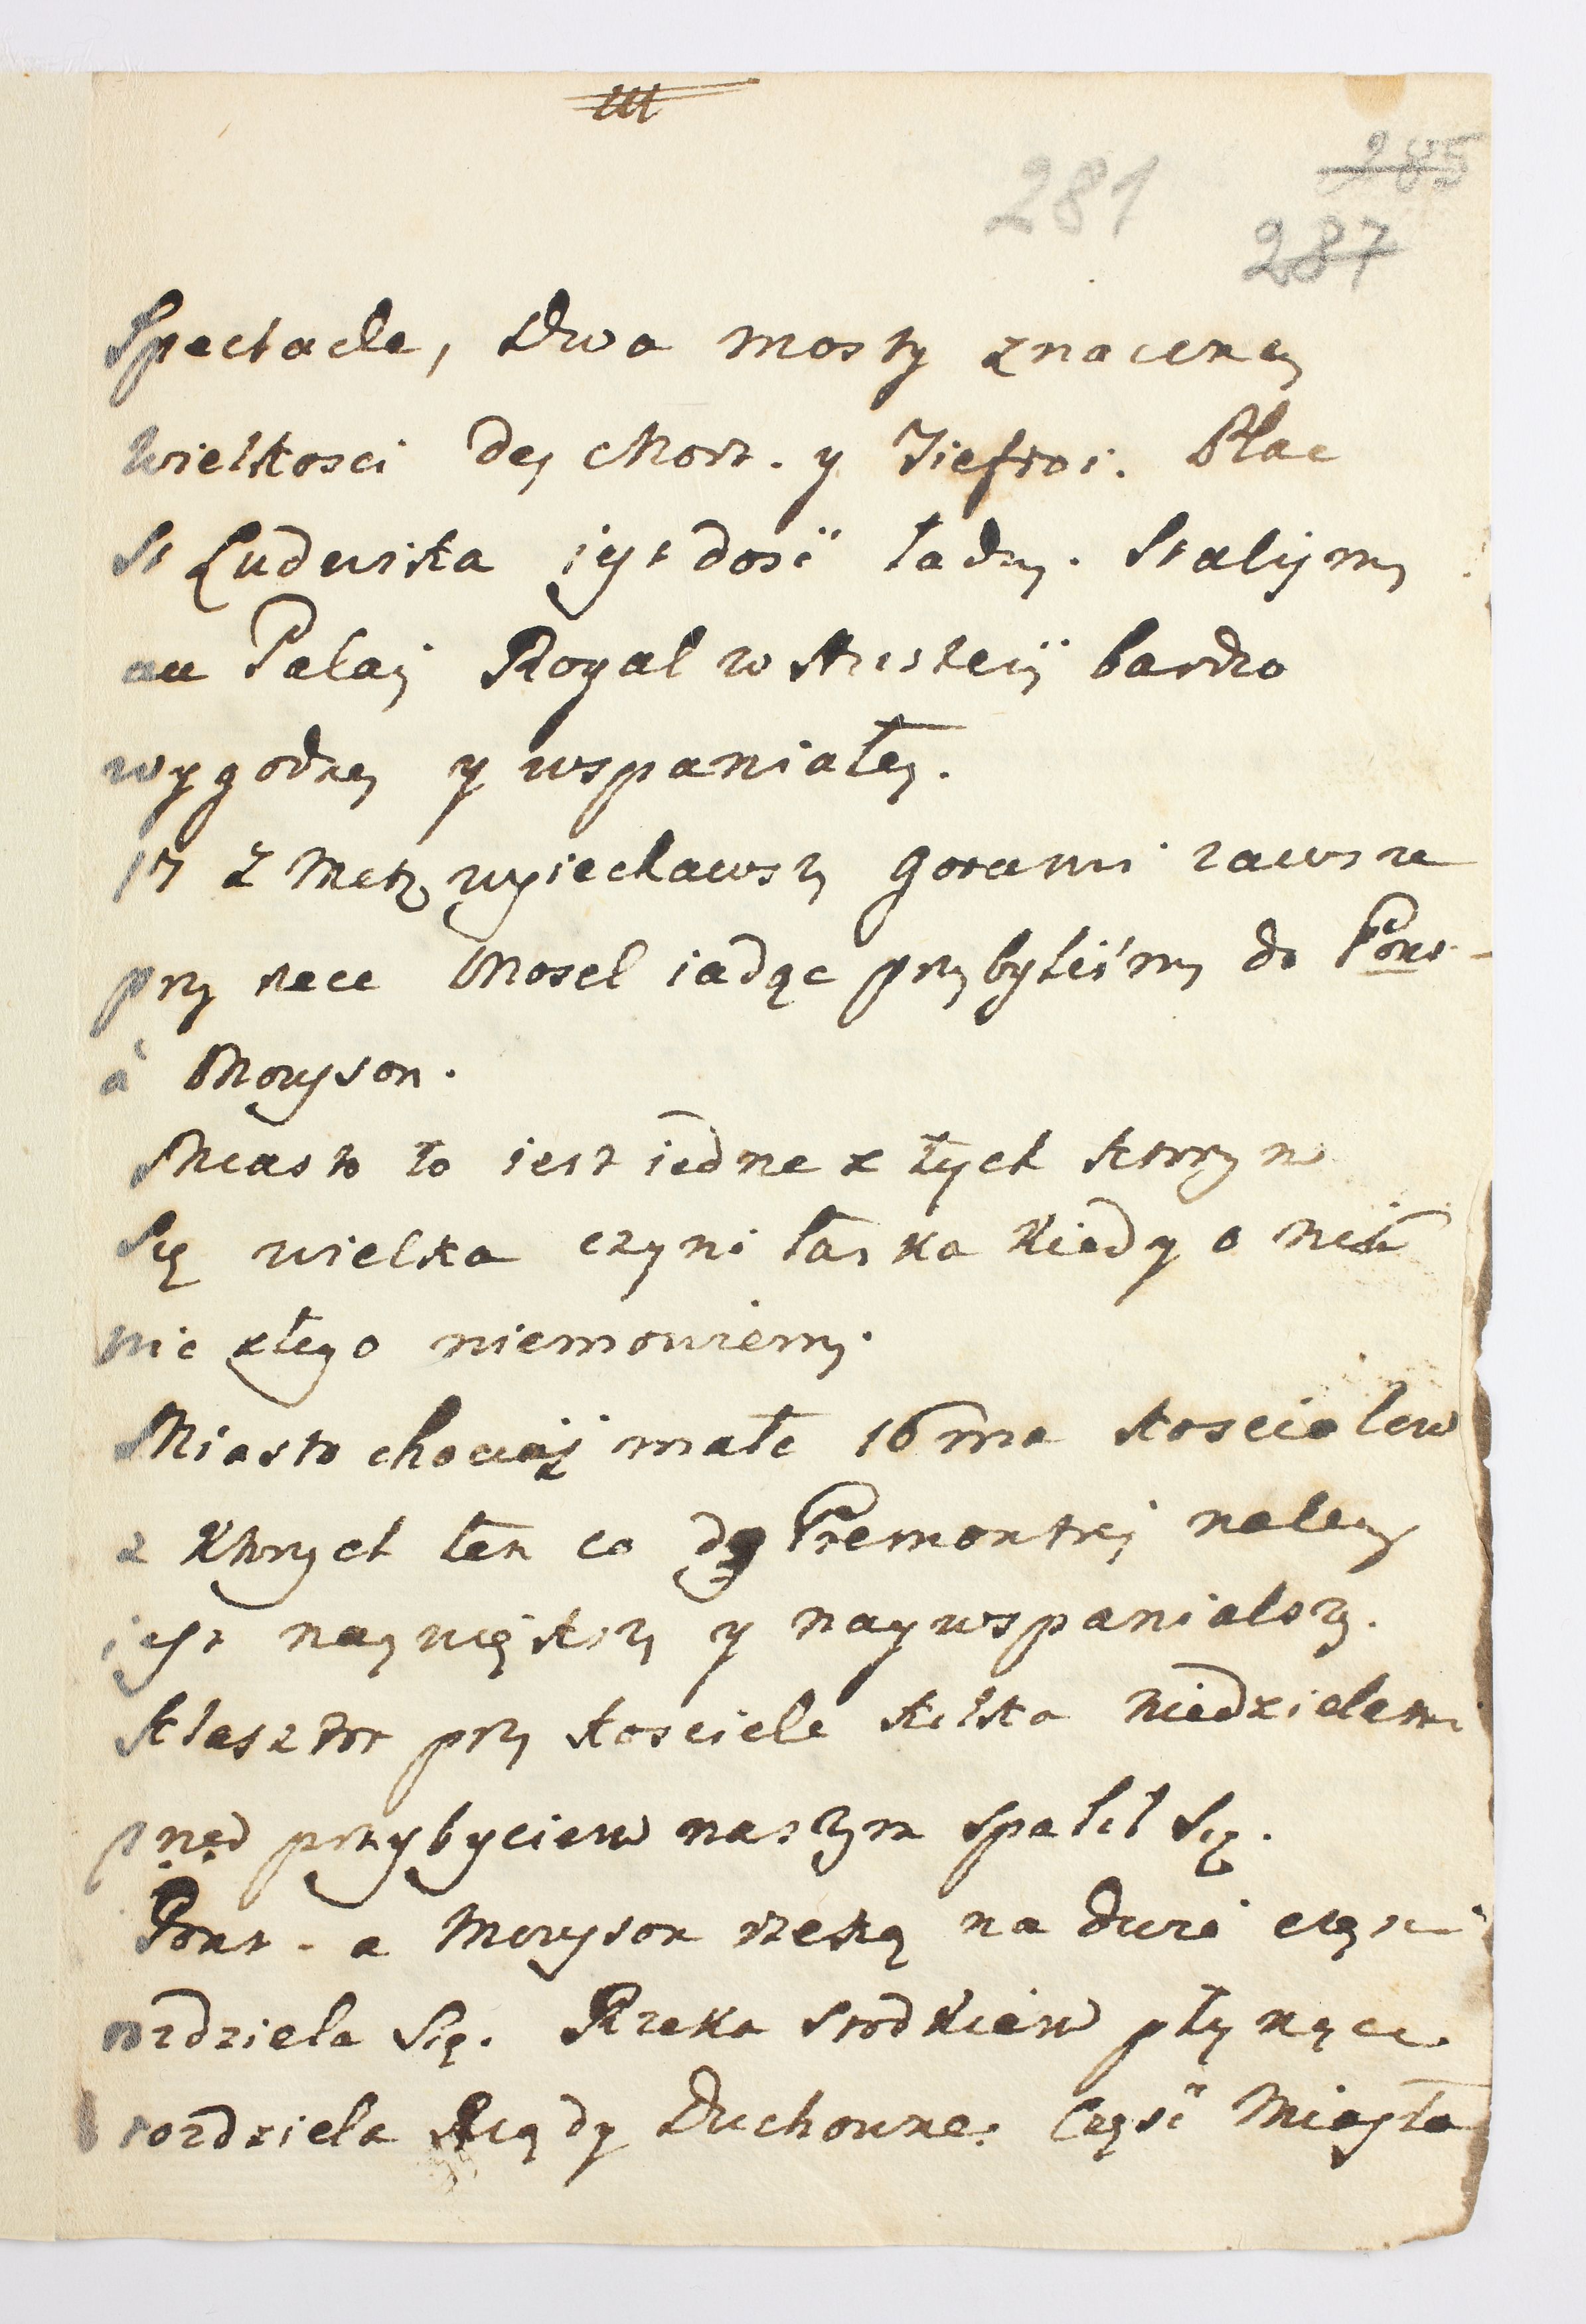 281
285
287
Spectacle, Dwa mosty znaczney
Wielkosci des Mort. y Tiefroi. Plac
St Ludwika jest dosć ładny. Stalismy
au Palais Royal w Austeij bardzo
wygodney y wspaniałey.
17 Z Metz wyiechawszy gorami zawsze
przy rzece Mosel iadąc przybyliśmy do Pont-
à Mouson.
Miasto to iest iedne z tych ktorym
Się wielka czyni łaska kiedy o nich
nic złego niemowiemy.
Miasto chociaż małe 16 ma kosciolow
z ktorych ten co do Premontrej nalezy
jest naywiększy y naywspanialszy.
Klasztor przy kosciele kilka niedzielami
przed przybyciem naszym spalił Się.
Pont-a Mouson rzeką na dwie częsci
rozdziela Się. Rzeka srodkiem płynąca
rozdziela Rządy Duchowne. Częsć Miasta